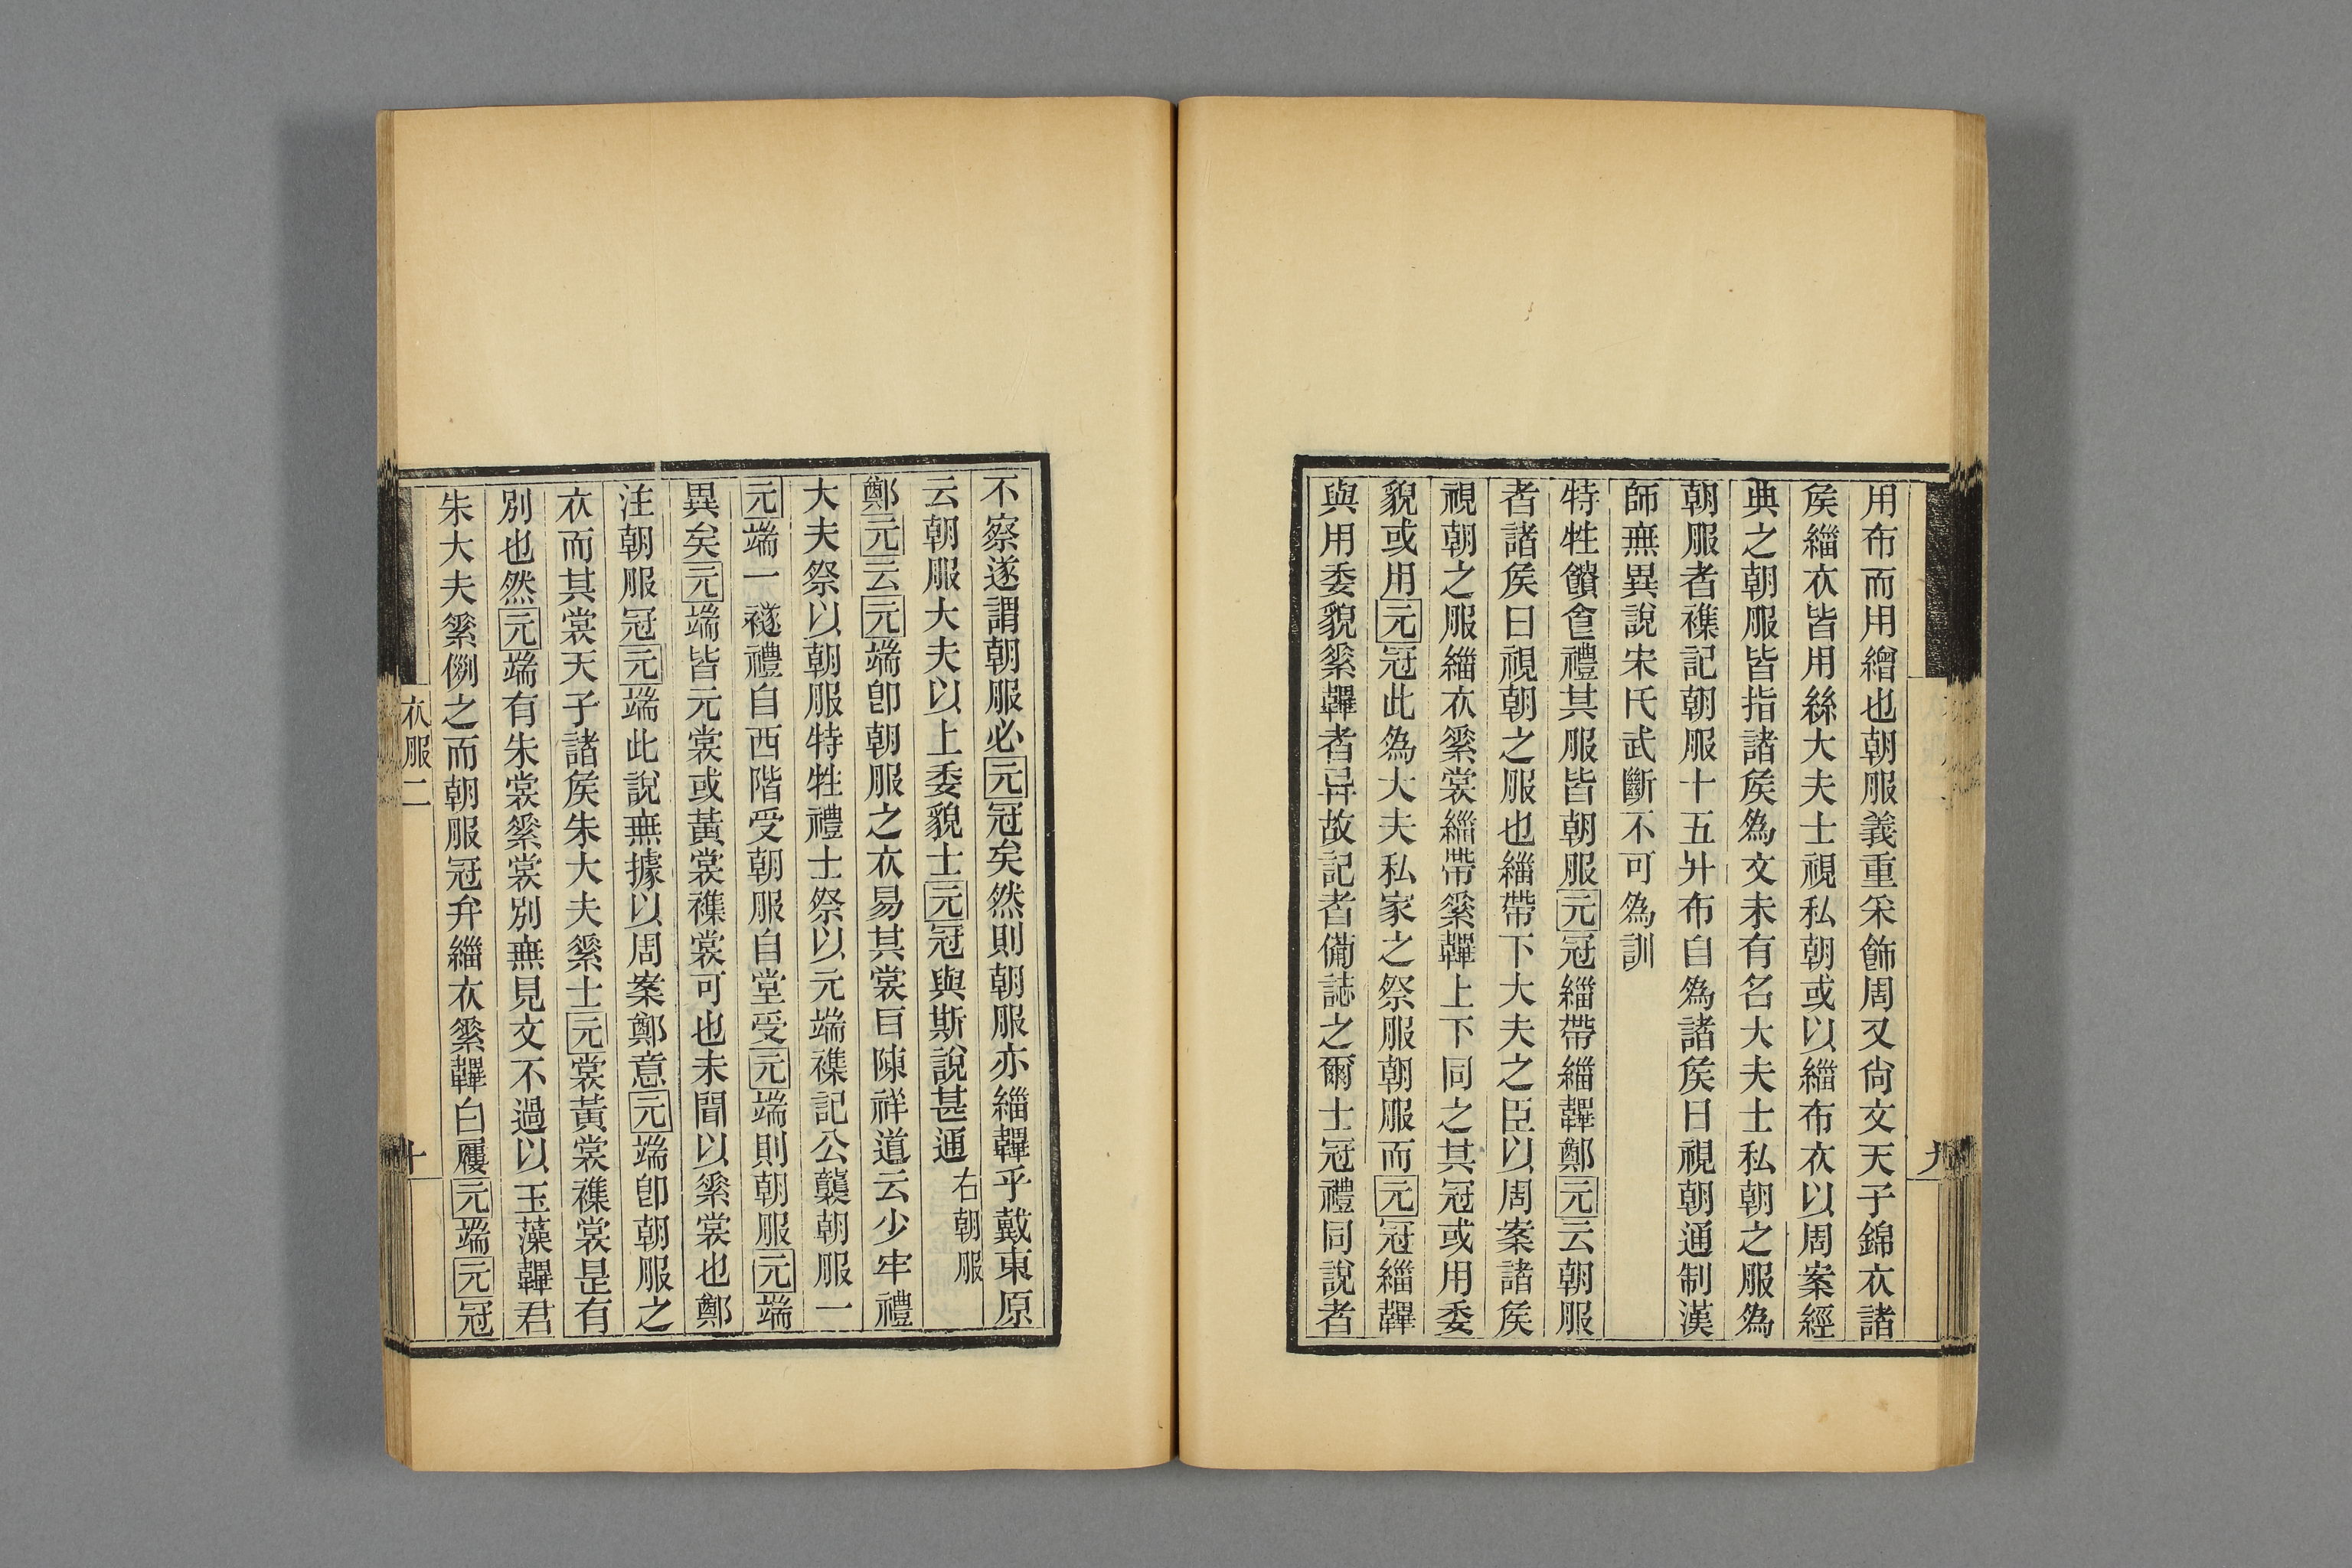 用布而用繒也朝服義重采飾周又尙文天子錦衣諸
矦緇衣皆用絲大夫士視私朝或以緇布衣以周案經
典之朝服皆指諸矦爲文未有名大夫士私朝之服爲
朝服者襍記朝服十五升布自爲諸矦日視朝通制漢
師無異說宋氏武斷不可爲訓
特牲饋食禮其服皆朝服元冠緇帶緇韠鄭元云朝服
者諸矦日視朝之服也緇帶下大夫之臣以周案諸矦
視朝之服緇衣纁裳緇帶纁韠上下同之其冠或用委
貌或用元冠此爲大夫私家之祭服朝服而元冠緇韠
與用委貌纁韠者異故記者備誌之爾士冠禮同說者
九
不察遂謂朝服必元冠矣然則朝服亦緇韠乎戴東原
云朝服大夫以上委貌士元冠與斯說甚通
右朝服
鄭元云元端卽朝服之衣易其裳㠯陳祥道云少牢禮
大夫祭以朝服特牲禮士祭以元端襍記公襲朝服一
元端一襚禮自西階受朝服自堂受元端則朝服元端
異矣元端皆元裳或黃裳襍裳可也未聞以纁裳也鄭
注朝服冠元端此說無據以周案鄭意元端卽朝服之
衣而其裳天子諸矦朱大夫纁士元裳黃裳襍裳是有
別也然元端有朱裳纁裳別無見文不過以玉藻韠君
朱大夫纁例之而朝服冠弁緇衣纁韠白屨元端元冠
衣服二
十